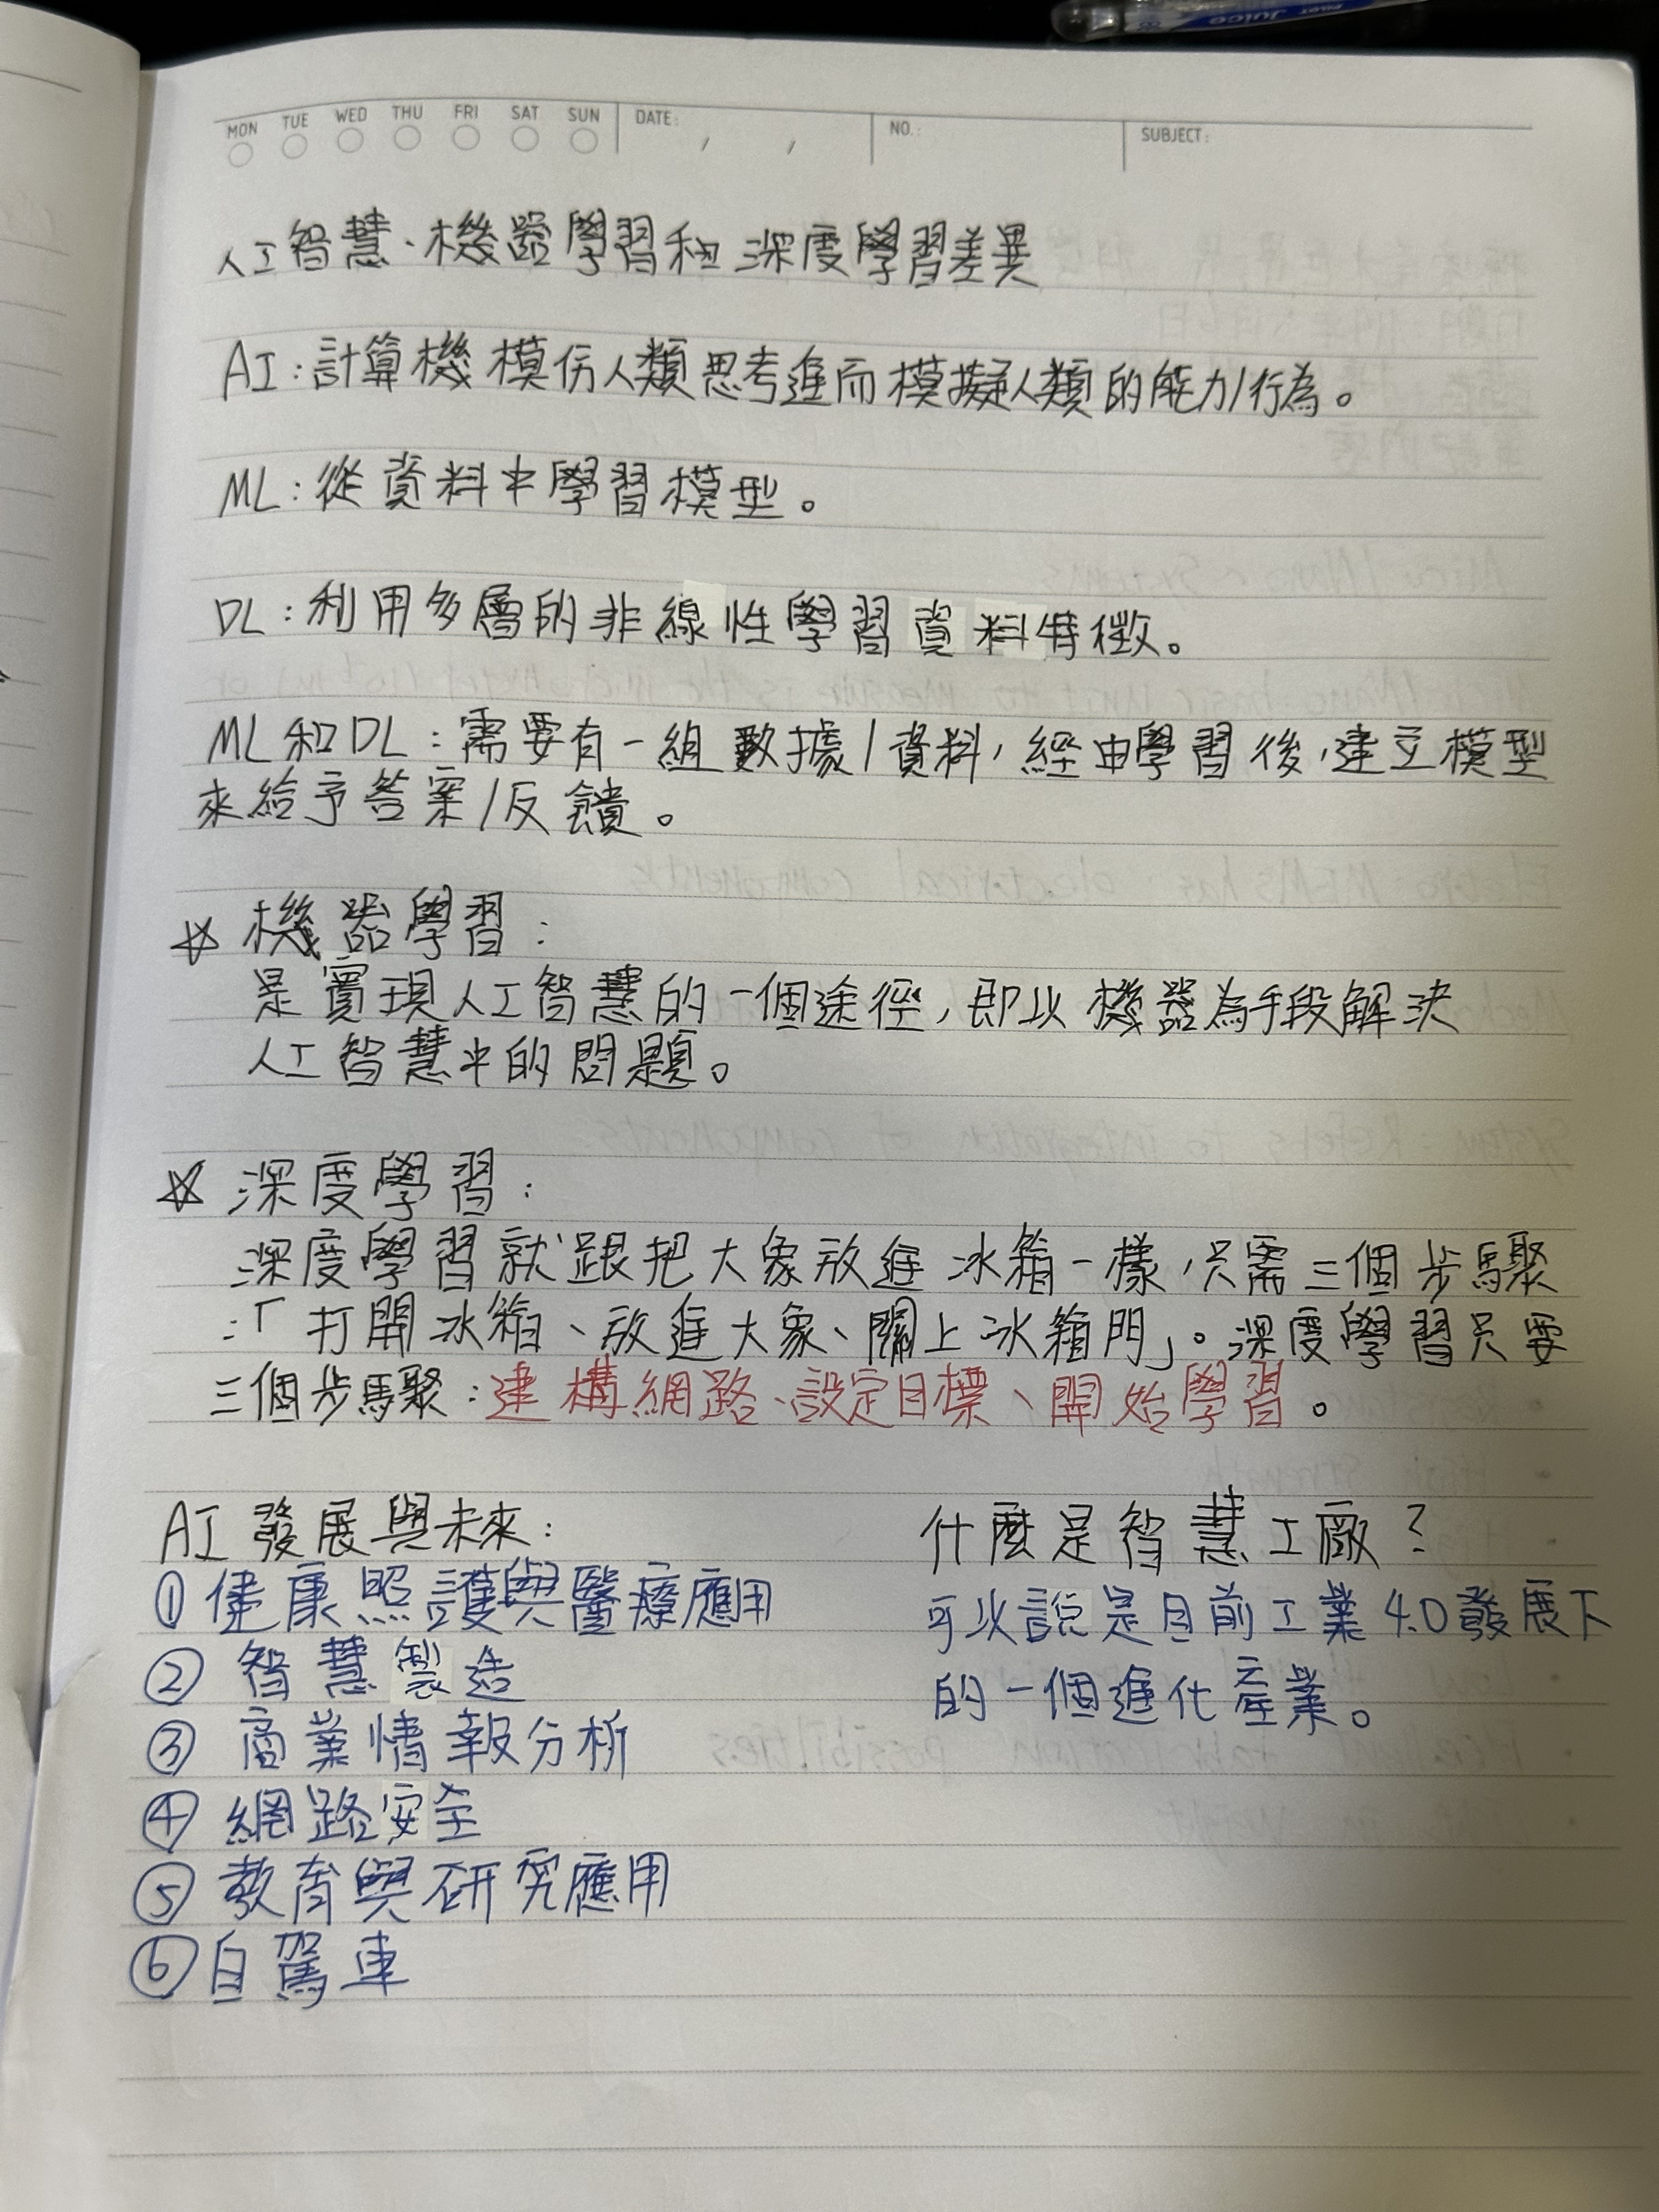 Juice
MON TUE WED THU FRI SAT SUN DATE: / / NO.: SUBJECT:
人工智慧、機器學習和深度學習差異
AI:計算機模仿人類思考進而模擬人類的能力/行為。
ML:從資料中學習模型。
DL:利用多層的非線性學習資料特徵。
ML和DL:需要有一組數據/資料,經由學習後,建立模型
來給予答案/反饋。
☆ 機器學習:
是實現人工智慧的一個途徑,即以機器為手段解決
人工智慧中的問題。
☆ 深度學習:
深度學習就跟把大象放進冰箱一樣,只需三個步驟
:「打開冰箱、放進大象、關上冰箱門」。深度學習只要
三個步驟:建構網路、設定目標、開始學習。
AI發展與未來:
①健康照護與醫療應用
②智慧製造
③商業情報分析
④網路安全
⑤教育與研究應用
⑥自駕車
什麼是智慧工廠?
可以說是目前工業4.0發展下
的一個進化產業。